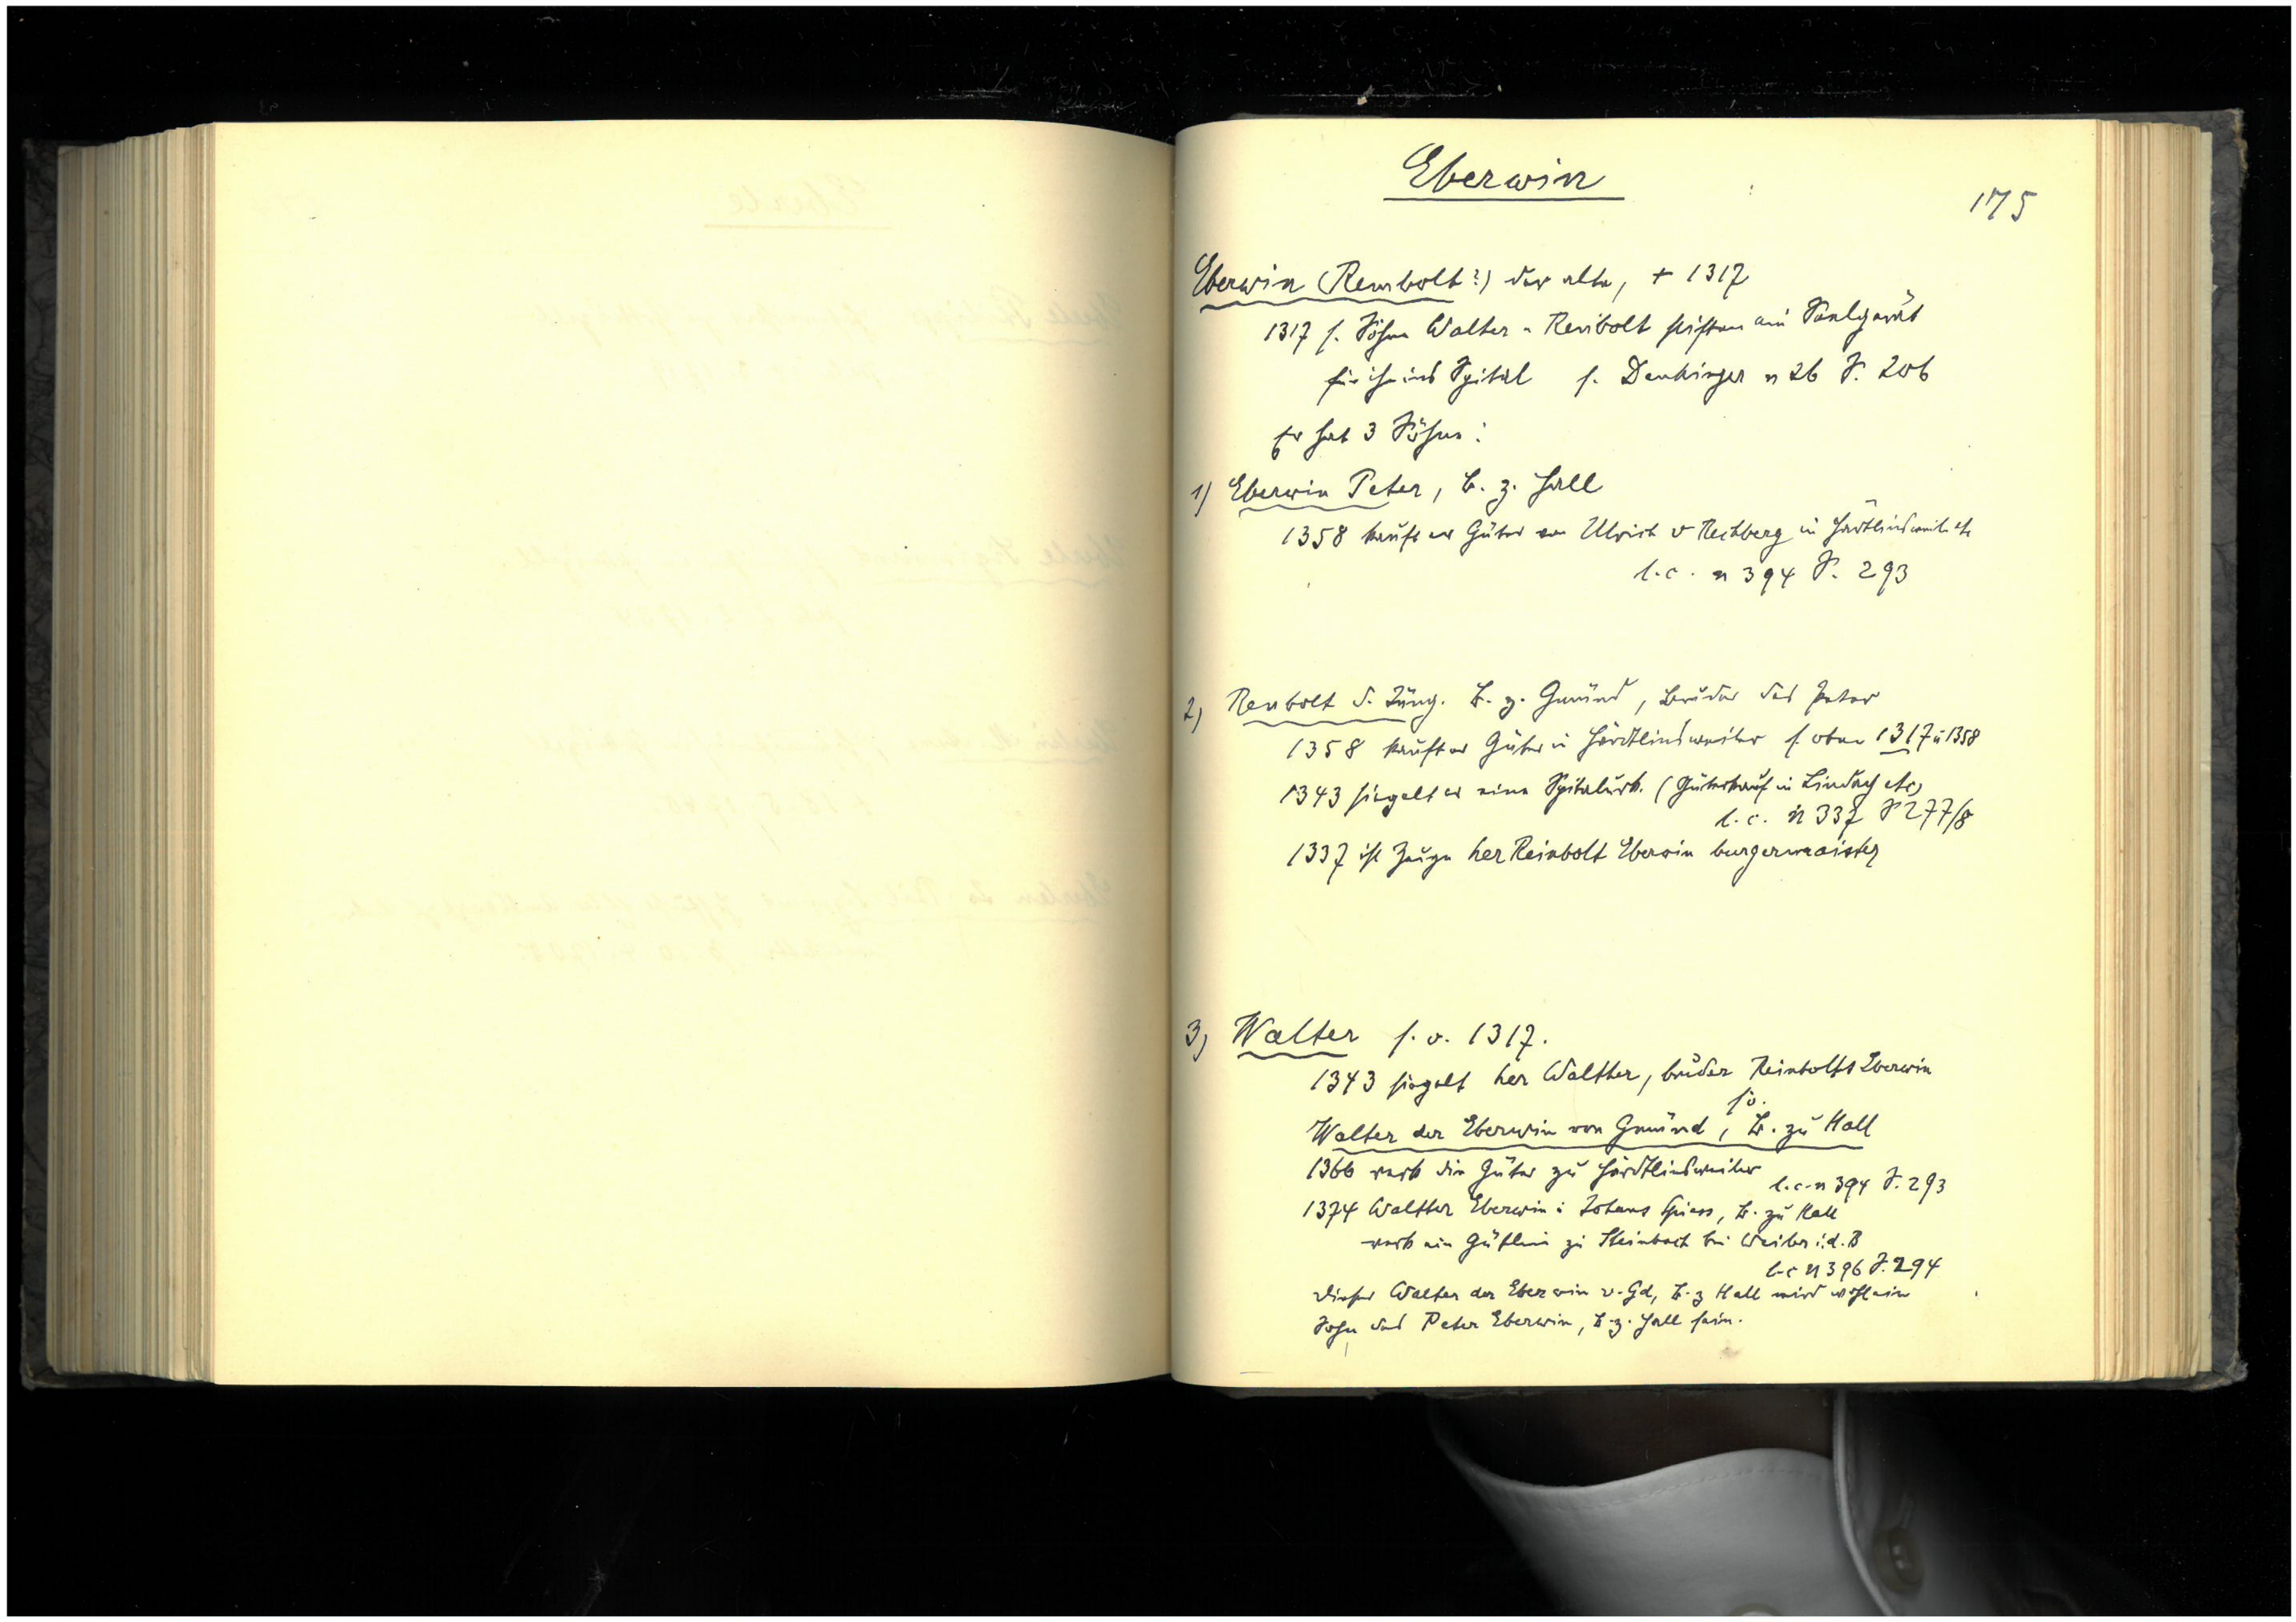 Eberwin
175
Eberwin (Rembolt?) der alte, + 1317
1317 s. Söhne Walter u Renbolt stiften ein Seelgerät
für ihn ins Spital s. Denkinger n 26 S. 206
Er hat 3 Söhne:
1) Eberwin Peter, B. z. Hall
1358 kauft er Güter von Ulrich v Rechberg in Härdtlinsweiler etc
l.c. n 394 S. 293
2) Renbolt d. Jüng. B. z. Gmünd, Bruder des Peter
1358 kauft er Güter in Härdtlinsweiler s. oben 1317 u 1358
1343 siegelt er eine Spitalurk. (Güterkauf in Lindach etc)
l.c. n 337 S 277/8
1337 ist Zeuge her Reinbolt Eberwin burgermaister
3) Walter s. o. 1317.
1343 siegelt her Walther, bruder Reinbolts Eberwin
s o.
Walter der Eberwin von Gmünd, B. zu Hall
1366 verk die Güter zu Härdtlinsweiler
l.c. n 394 S. 293
1374 Walther Eberwin u Johans Spiess, B. zu Hall
verk ein Gütlein zu Steinbach bei Weiler i.d.B
l.c n 396 S. 294
Dieser Walter der Eberwin v. Gd, B. z Hall wird wohl ein
Sohn des Peter Eberwin, B. z. Hall sein.